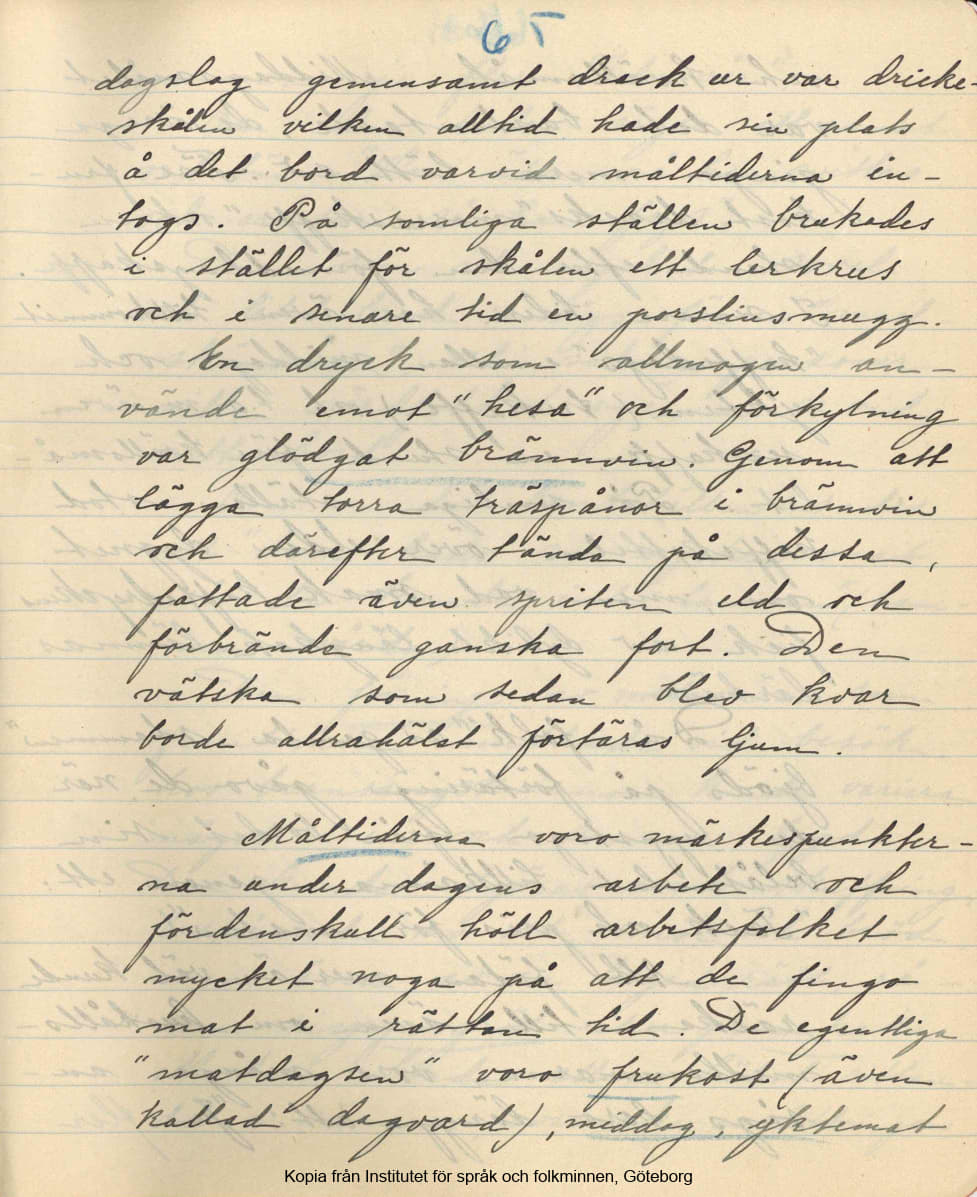 65
dagslag gemensamt drack ur var dricke-
skålen vilken alltid hade sin plats
å det bord varvid måltiderna in-
togs. På somliga ställen brukades
i stället för skålen ett lerkrus
och i senare tid en porslinsmugg.
En dryck som allmogen an-
vände emot "hesa" och förkylning
var glödgat brännvin. Genom att
lägga torra träspånor i brännvin
och därefter tända på dessa,
fattade även spriten eld och
förbrände ganska fort. Den
vätska som sedan blev kvar
borde allrahälst förtäras ljum.
Måltiderna voro märkespunkter-
na under dagens arbete och
fördenskull höll arbetsfolket
mycket noga på att de fingo
mat i rättan tid. De egentliga
"matdagsen" voro frukost (även
kallad dagvard), middag, yktemat
Kopia från Institutet för språk och folkminnen, Göteborg